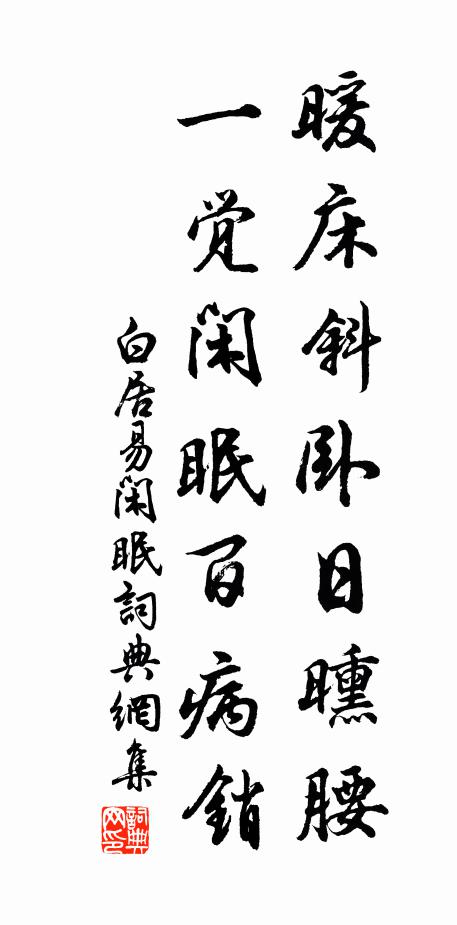 暖床斜卧日曛腰
一觉闲眠百病销
白居易闲眠詞典網集
詞典网印